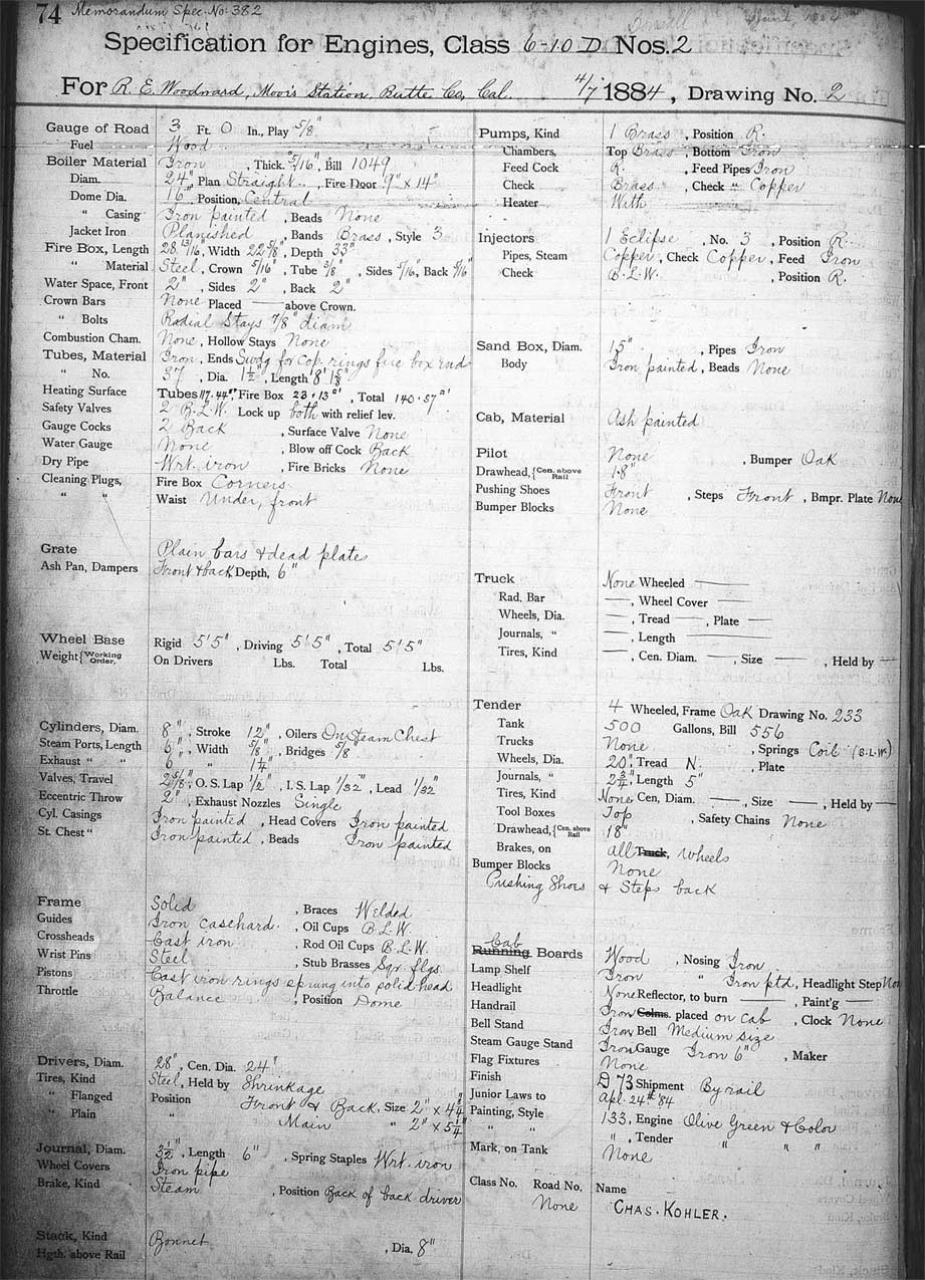 74 Memorandum Spec. No. 382
Specification for Engines, Class 6-10 D Nos. 2
For R. E. Woodward, Moor's Station, Butte Co, Cal. 4/7 1884, Drawing No. 2
Gauge of Road 3 Ft. 0 In., Play 5/8"
Fuel Wood
Boiler Material Iron, Thick. 5/16", Bill 1049
Diam. 24" Plan Straight, Fire Door 9" x 14"
Dome Dia. 16", Position, Central
" Casing Iron painted, Beads None
Jacket Iron Planished, Bands Brass, Style 3
Fire Box, Length 28 13/16", Width 22 5/8", Depth 33"
" Material Steel, Crown 5/16, Tube 3/8", Sides 5/16, Back 5/16"
Water Space, Front 2", Sides 2", Back 2"
Crown Bars None Placed — above Crown.
" Bolts Radial Stays 7/8" diam
Combustion Cham. None, Hollow Stays None
Tubes, Material Iron, Ends Swdg for cop rings fire box end
" No. 37, Dia. 1 1/2", Length 8'
Heating Surface Tubes 117.44, Fire Box 23.13, Total 140.57
Safety Valves 2 B.L.W. Lock up both with relief lev.
Gauge Cocks 2 Back, Surface Valve None
Water Gauge None, Blow off Cock Back
Dry Pipe Wrt. iron, Fire Bricks None
Cleaning Plugs, Fire Box Corners
" " Waist Under, front
Grate Plain bars & dead plate
Ash Pan, Dampers Front & back, Depth, 6"
Wheel Base Rigid 5'5", Driving 5'5", Total 5'5"
Weight {Working Order, On Drivers Lbs. Total Lbs.
Cylinders, Diam. 8", Stroke 12", Oilers On Steam Chest
Steam Ports, Length 6", Width 5/8", Bridges 5/8
Exhaust " " 6" " 1 1/4"
Valves, Travel 2 5/8", O.S. Lap 1/2", I.S. Lap 1/32", Lead 1/32
Eccentric Throw 2", Exhaust Nozzles Single
Cyl. Casings Iron painted, Head Covers Iron painted
St. Chest " Iron painted, Beads Iron painted
Frame Solid, Braces Welded
Guides Iron casehard., Oil Cups B.L.W.
Crossheads Cast iron, Rod Oil Cups B.L.W.
Wrist Pins Steel, Stub Brasses Sqr. flgs.
Pistons Cast iron rings sprung into solid head
Throttle Balance, Position Dome
Drivers, Diam. 28", Cen. Dia. 24"
Tires, Kind Steel, Held by Shrinkage
" Flanged Position Front & Back, Size 2" x 4
" Plain " Main " 2" x 5
Journal, Diam. 3 1/2", Length 6", Spring Staples Wrt. iron
Wheel Covers Iron pipe
Brake, Kind Steam, Position Back of back driver
Stack, Kind Bonnet
Hgth. above Rail, Dia. 8"
Pumps, Kind 1 Brass, Position R.
Chambers, Top Brass, Bottom Iron
Feed Cock R., Feed Pipes Iron
Check Brass, Check " Copper
Heater With
Injectors 1 Eclipse, No. 3, Position R.
Pipes, Steam Copper, Check Copper, Feed Iron
Check B.L.W., Position R.
Sand Box, Diam. 15", Pipes Iron
Body Iron painted, Beads None
Cab, Material Ash painted
Pilot None, Bumper Oak
Drawhead, {Cen. above Rail 18"
Pushing Shoes Front, Steps Front, Bmpr. Plate None
Bumper Blocks None
Truck None Wheeled —
Rad. Bar —, Wheel Cover —
Wheels, Dia. —, Tread —, Plate —
Journals, " —, Length —
Tires, Kind —, Cen. Diam. —, Size —, Held by —
Tender 4 Wheeled, Frame Oak Drawing No. 233
Tank 500 Gallons, Bill 556
Trucks None, Springs Coil (B.L.W.)
Wheels, Dia. 20", Tread N., Plate
Journals, " 2 3/4", Length 5"
Tires, Kind None Cen, Diam. —, Size —, Held by —
Tool Boxes Top, Safety Chains None
Drawhead, {Cen. above Rail 18"
Brakes, on all Truck, Wheels
Bumper Blocks None
Pushing Shoes & Steps back
Cab
Running Boards Wood, Nosing Iron
Lamp Shelf Iron " Iron ptd, Headlight Step
Headlight None Reflector, to burn —, Paint'g —
Handrail Iron Colms. placed on cab, Clock None
Bell Stand Iron Bell Medium size
Steam Gauge Stand Iron Gauge Iron 6", Maker
Flag Fixtures None
Finish D. 73 Shipment By rail
Junior Laws to Apl. 24th '84
Painting, Style 133, Engine Olive Green & Color
" " ", Tender " " "
Mark, on Tank None
Class No. Road No. None Name CHAS. KOHLER.